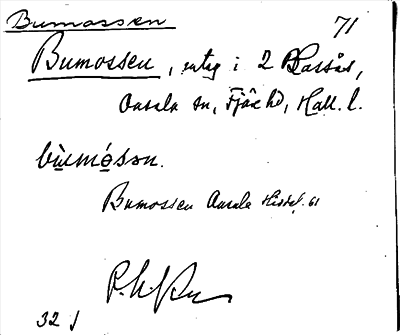 Bumossen
71
Bumossen, utäg i 2 Blåssås,
Onsala sn, Fjäre hd, Hall. l.
bùmósən.
Bumossen Onsala Histbl. 61
32 J